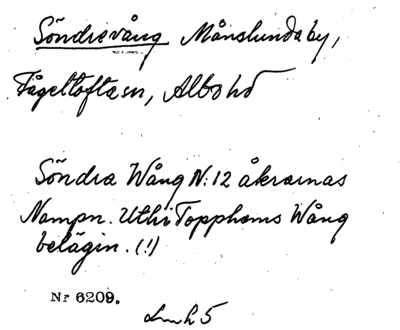 Söndrevång Månslunda by,
Fågeltofta sn, Albo hd
Söndra Wång N:12 åkrarnas
Nampn. Uthi Topphems Wång
belägin. (!)
Nr 6209.